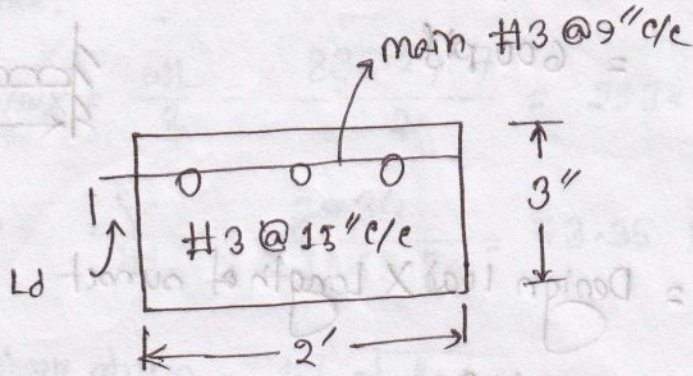 main #3 @ 9" c/c
3"
#3 @ 15" c/c
Ld
2'